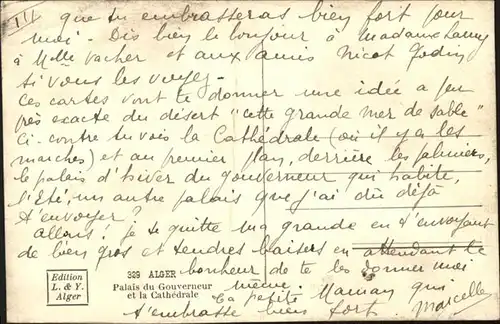 III
que tu embrasseras bien fort pour
moi - Dis bien le bonjour à Madame Lamy
à Melle Vacher et aux amis Nicot Godin
si vous les voyez -
Ces cartes vont te donner une idée à peu
près exacte du désert "cette grande mer de sable"
Ci-contre tu vois la Cathédrale (où il y a les
marches) et au premier plan, derrière les palmiers,
le palais d'hiver du gouverneur qui habite,
l'Eté, un autre palais que j'ai dû déjà
t'envoyer?
allons! je te quitte ma grande en t'envoyant
de bien gros et tendres baisers en attendant le
bonheur de te les donner moi
même.
ta petite Maman qui
t'embrasse bien fort. Marcelle
Edition
L. & Y.
Alger
329 ALGER
Palais du Gouverneur
et la Cathédrale